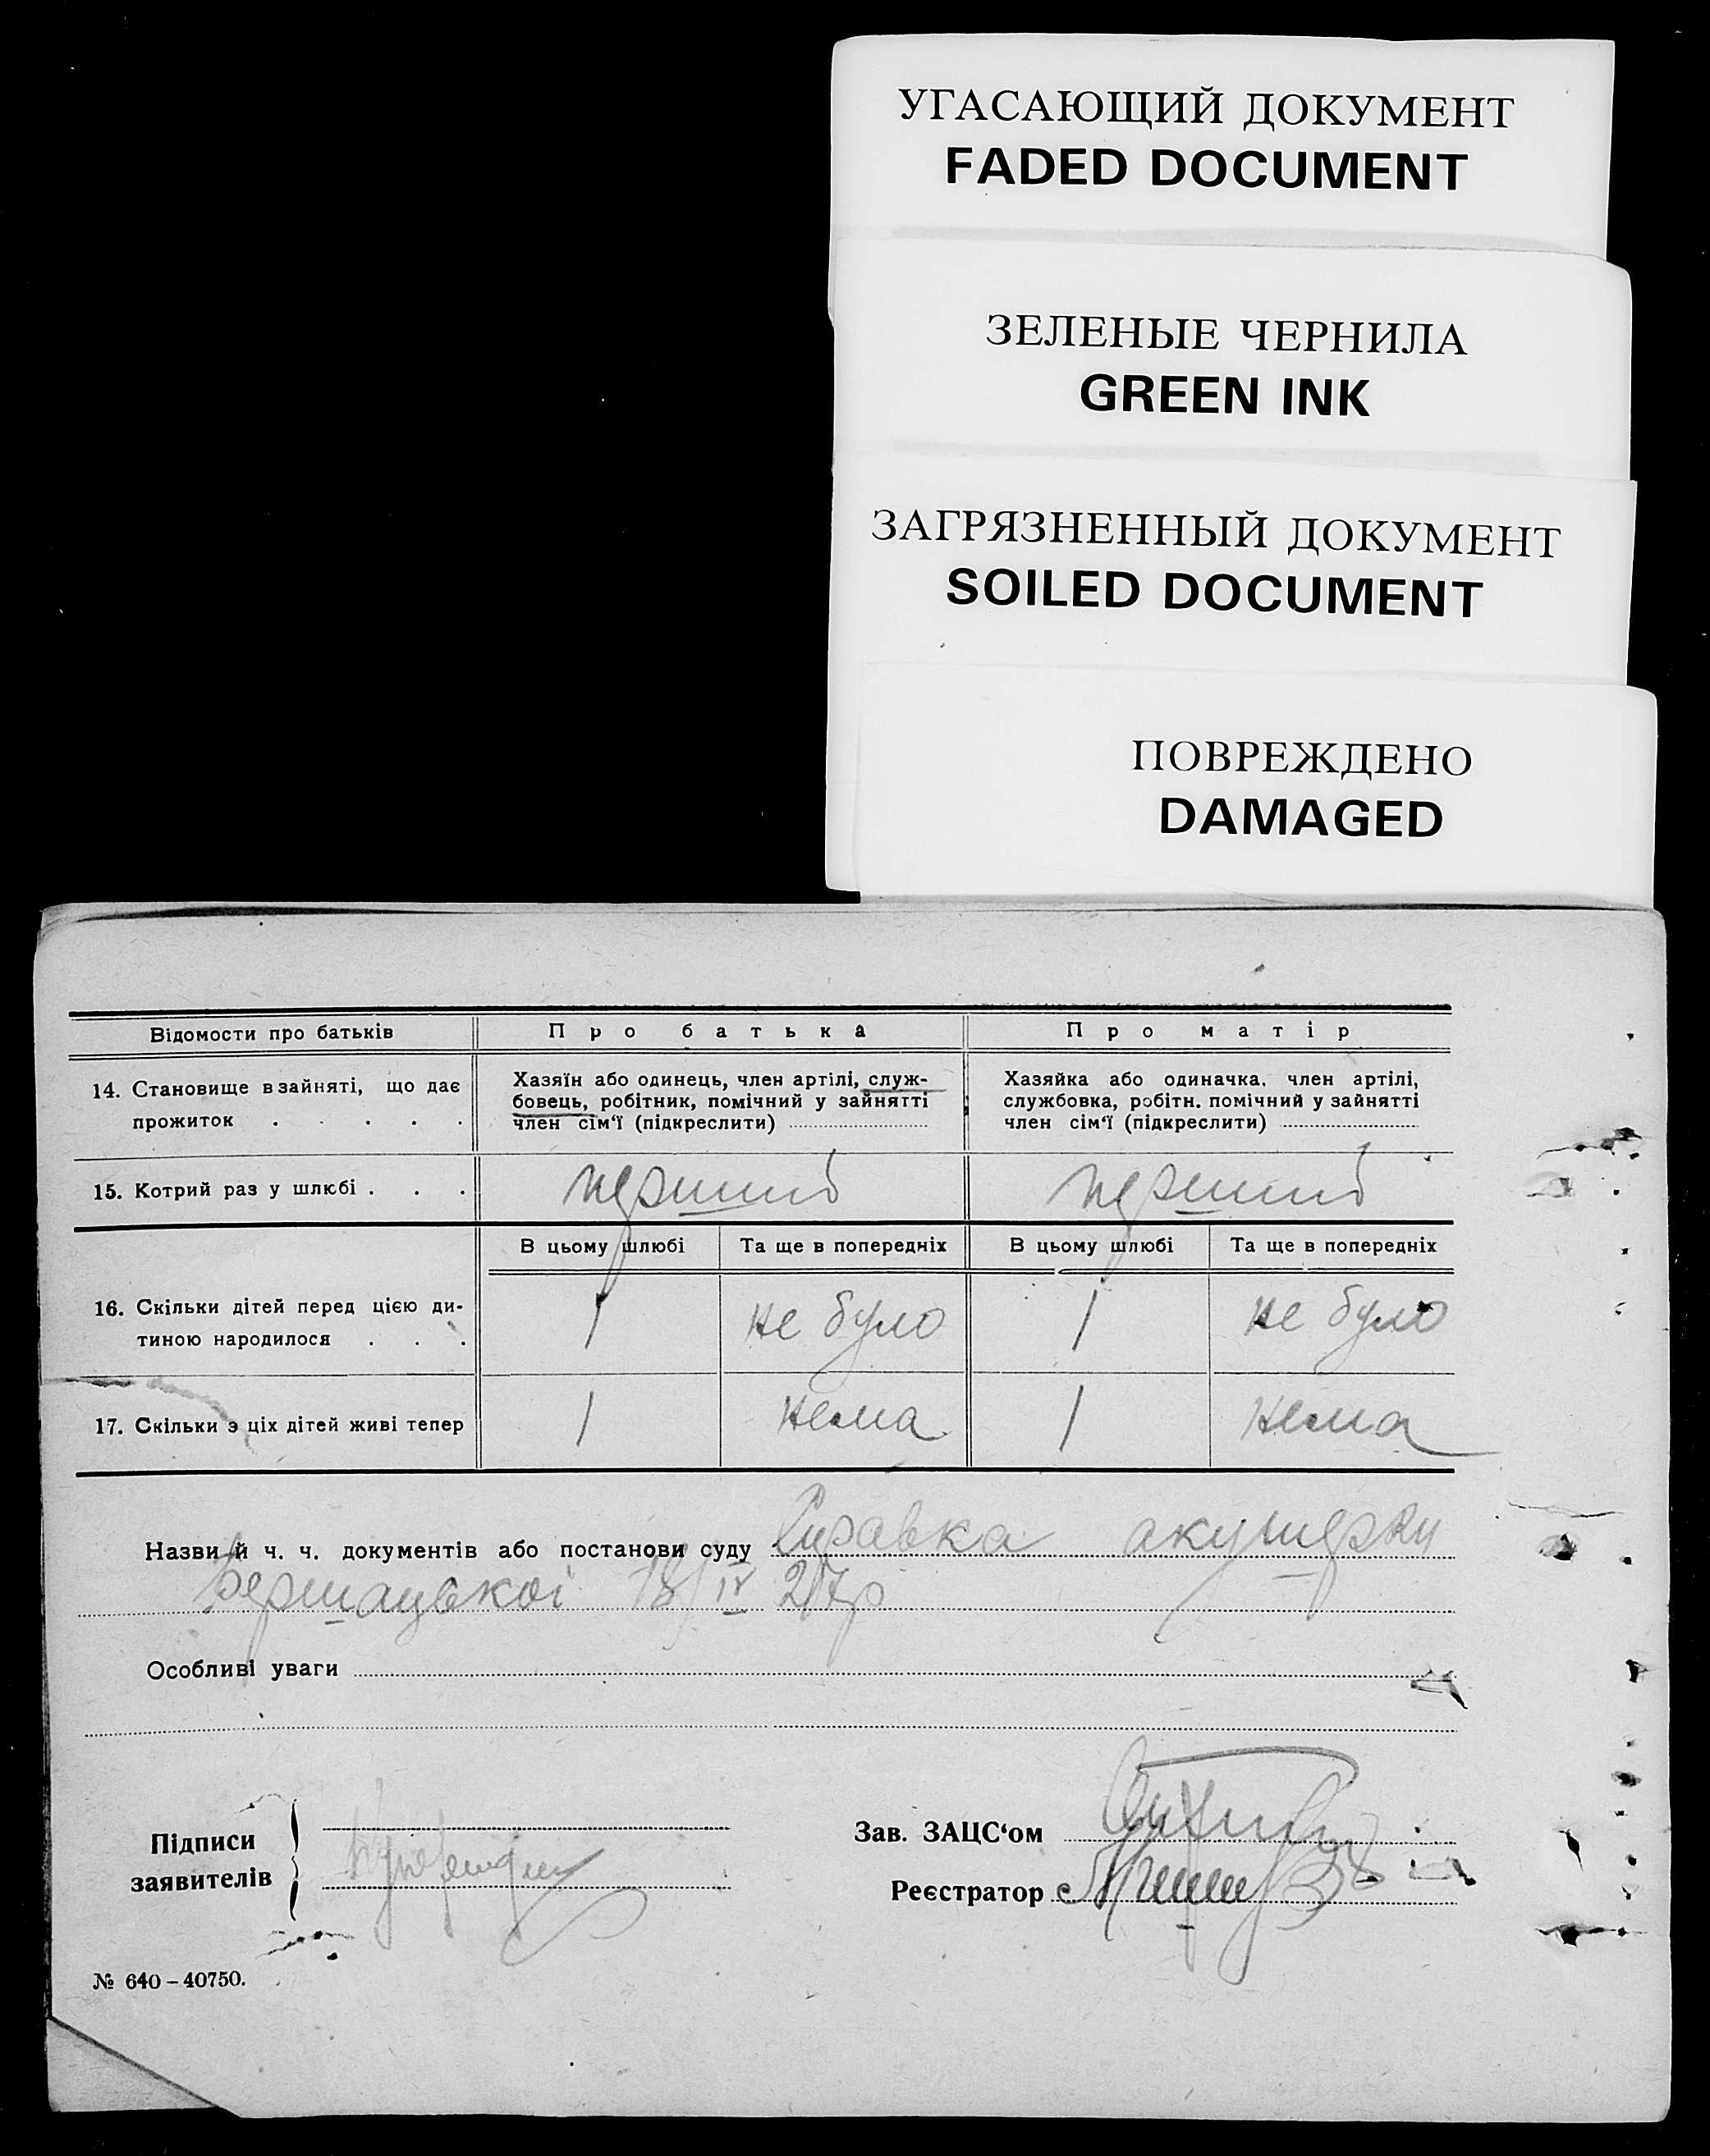 УГАСАЮЩИЙ ДОКУМЕНТ
FADED DOCUMENT
ЗЕЛЕНЫЕ ЧЕРНИЛА
GREEN INK
ЗАГРЯЗНЕННЫЙ ДОКУМЕНТ
SOILED DOCUMENT
ПОВРЕЖДЕНО
DAMAGED
Відомости про батьків Про батька Про матір
14. Становище в зайняті, що дає прожиток . . . . .
Хазяїн або одинець, член артілі, служ-
бовець, робітник, помічний у зайнятті
член сім‘ї (підкреслити)
Хазяйка або одиначка, член артілі,
службовка, робітн. помічний у зайнятті
член сім‘ї (підкреслити)
15. Котрий раз у шлюбі . . . перший перший
В цьому шлюбі Та ще в попередніх В цьому шлюбі Та ще в попередніх
16. Скільки дітей перед цією ди-
тиною народилося . . . 1 не було 1 не було
17. Скільки з ціх дітей живі тепер 1 нема 1 нема
Назви й ч. ч. документів або постанови суду Справка акушерки
Бершацької 18/IV 27р
Особливі уваги
Підписи
заявителів
Зав. ЗАЦС‘ом
Реєстратор
№ 640–40750.